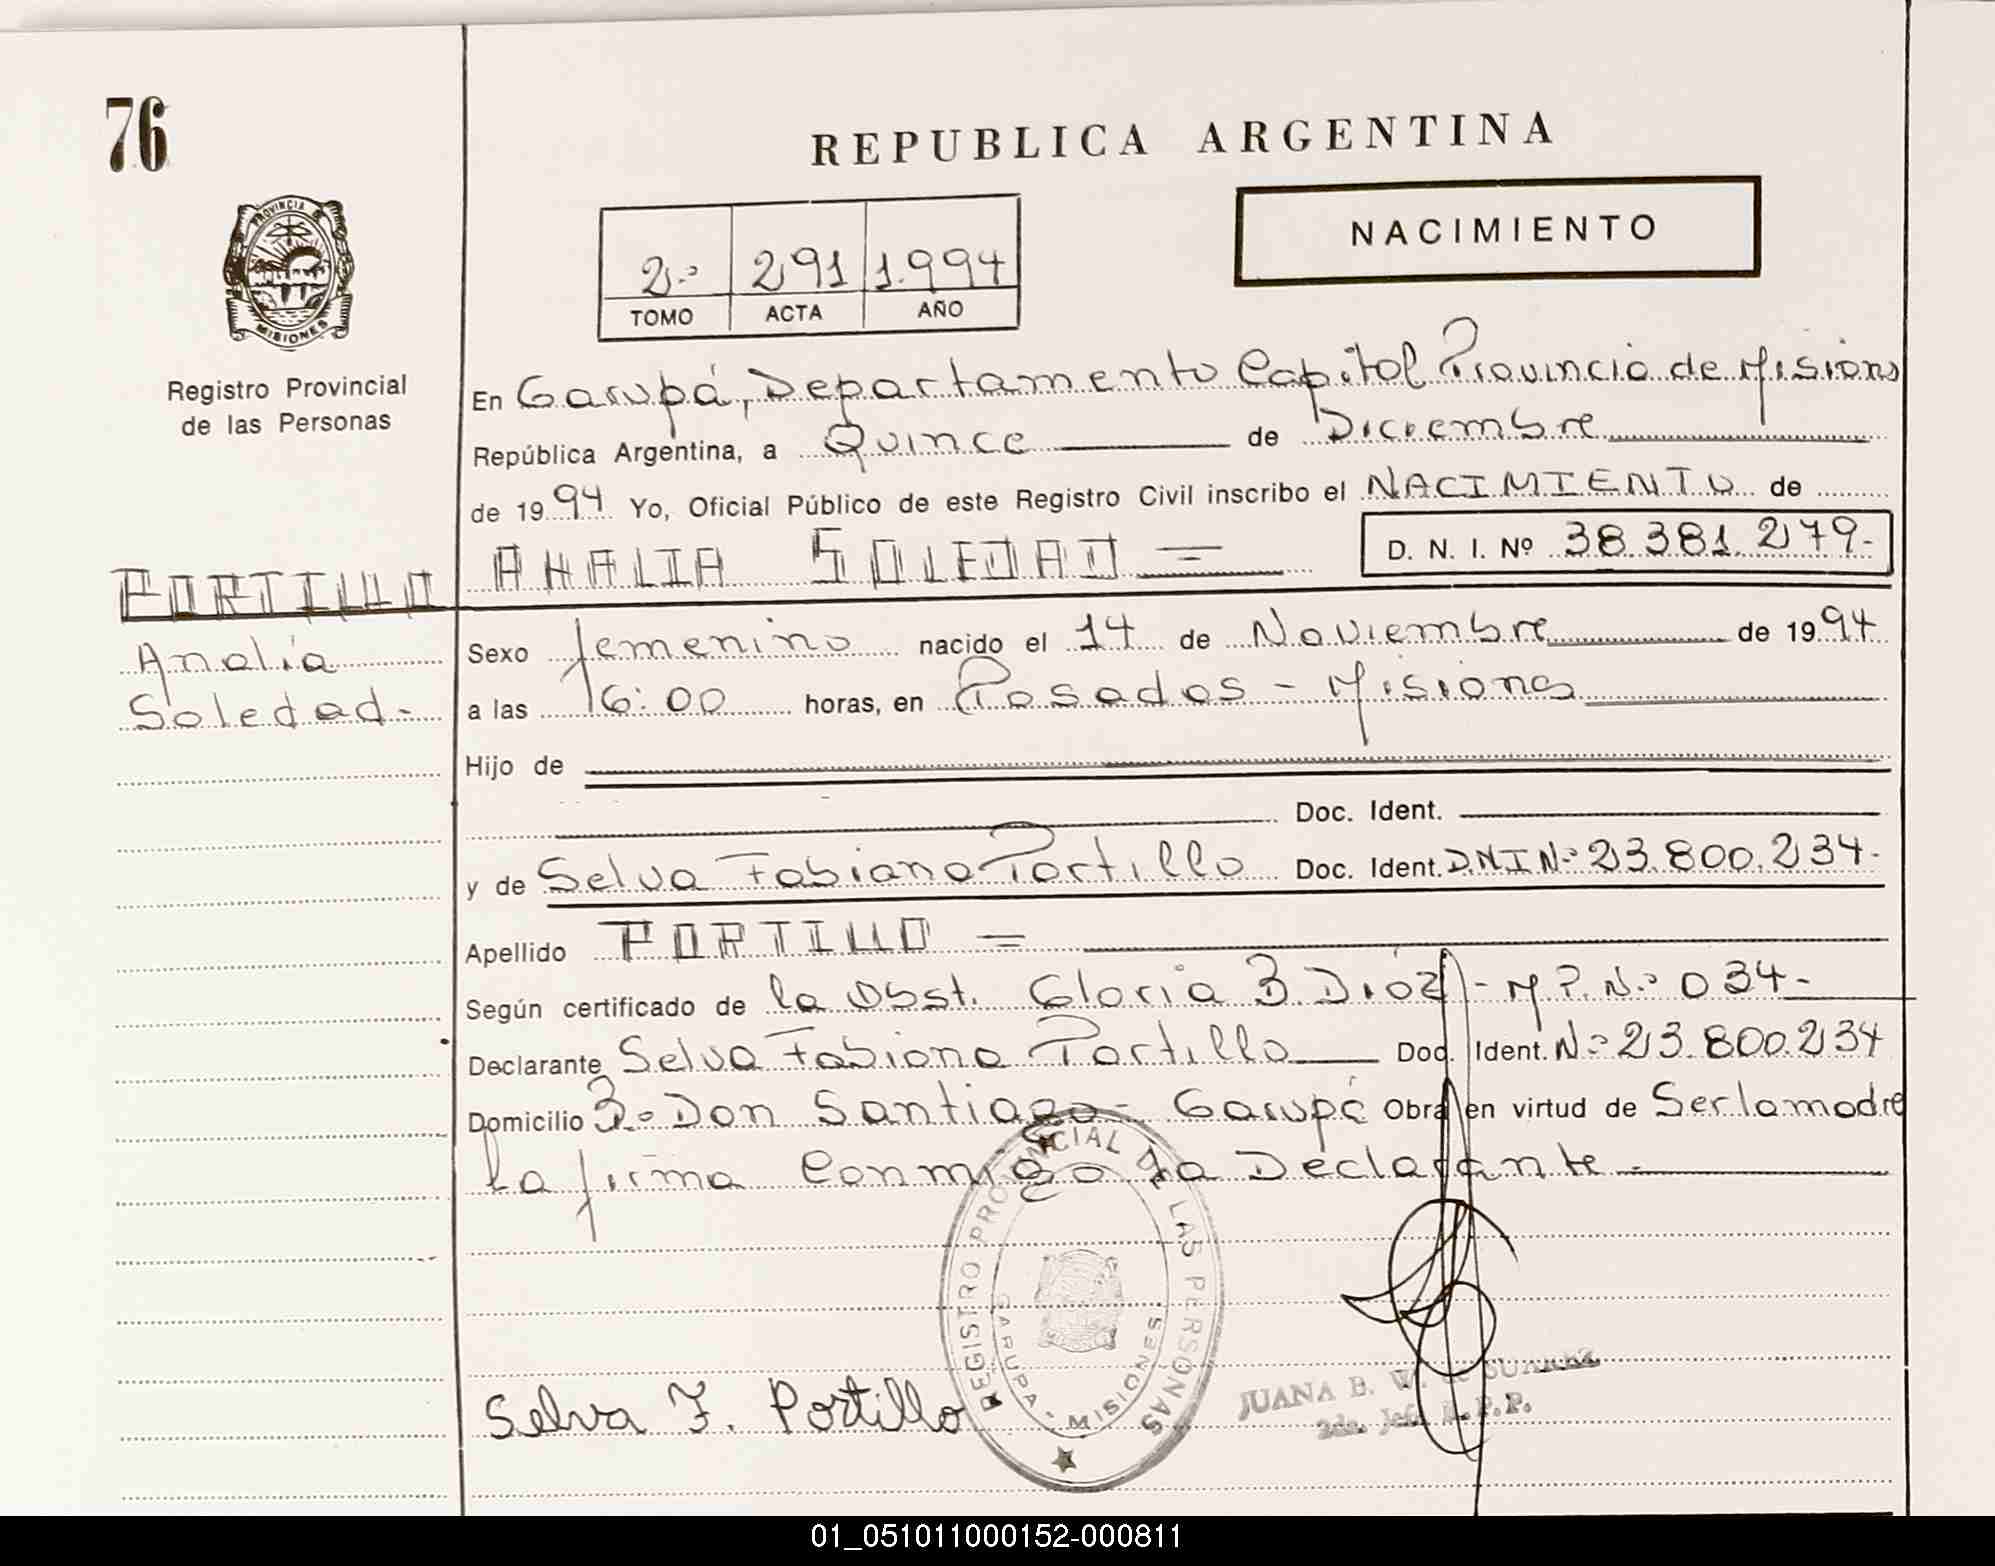 76
REPUBLICA ARGENTINA
PROVINCIA DE
MISIONES
2º 291 1.994
TOMO ACTA AÑO
NACIMIENTO
Registro Provincial
de las Personas
En Garupá, Departamento Capital Provincia de Misiones
República Argentina, a Quince de Diciembre
de 1994 Yo, Oficial Público de este Registro Civil inscribo el NACIMIENTO de
ANALIA SOLEDAD = D. N. I. Nº 38.381.279-
PORTILLO
Analía
Soledad-
Sexo femenino nacido el 14 de Noviembre de 1994
a las 16:00 horas, en Posadas - Misiones
Hijo de
Doc. Ident.
y de Selva Fabiana Portillo Doc. Ident. D.N.I Nº 23.800.234-
Apellido PORTILLO =
Según certificado de la Obst. Gloria B. Dióz - M.P. Nº 034-
Declarante Selva Fabiana Portillo Doc. Ident. Nº 23.800.234
Domicilio Bº Don Santiago - Garupá Obra en virtud de Ser la madre
la firma Conmigo la Declarante -
REGISTRO PROVINCIAL DE LAS PERSONAS
GARUPA - MISIONES
Selva F. Portillo
JUANA B. W. de SUAREZ
2da. Jefe R.P.P.
01_051011000152-000811